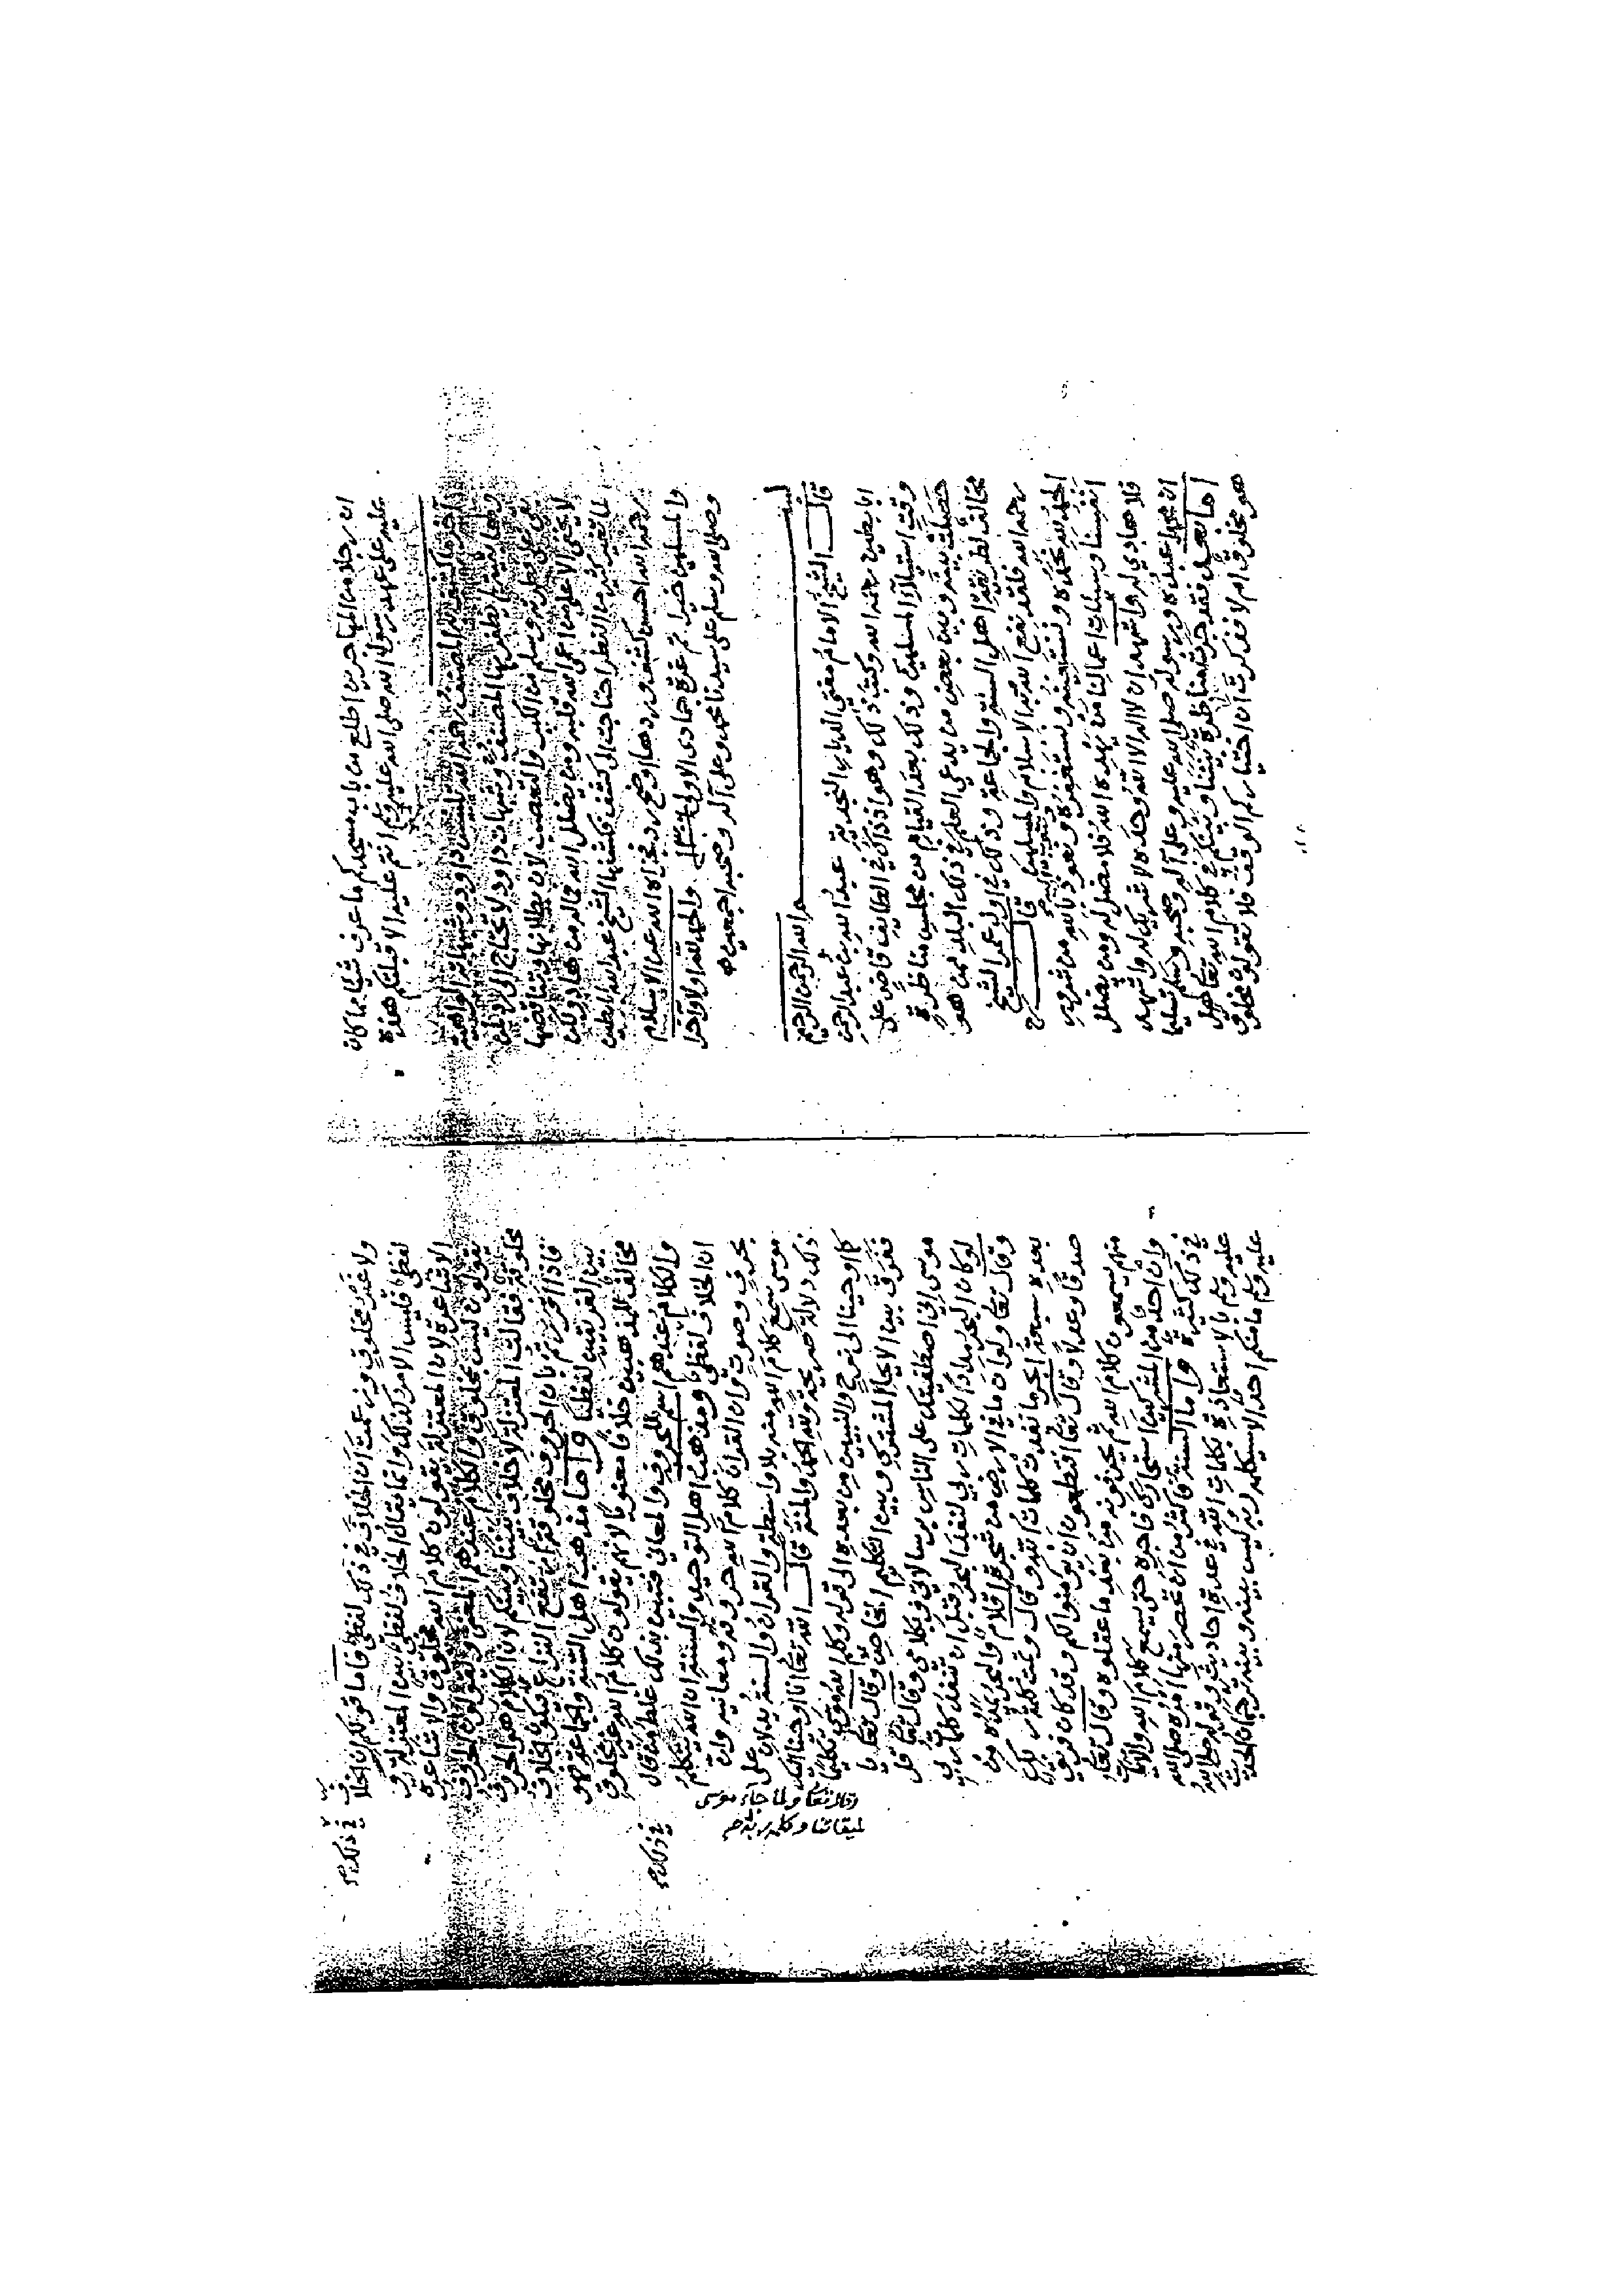 ان رجلا من المهاجرين اطلع من باب مسجدكم ما عرف شيا مما كانه
عليه على عهد رسول الله صلى الله عليه وسلم انتم عليه الا قبلتكم هذه
آخر ما كتبه المصنف رحمه الله داود وشبهاته الواهية
لا يخفى الا على من اعمى الله قلبه ومن يضلل الله فماله من هاد ولكن
لما تغير كثير من الفطر احتاجت الى كشف فكشفها الشيخ عبد الله ابابطين
رحمه الله احسن كشف وردها اوضح رد فجزاه الله عن الاسلام
والمسلمين خيرا تم غرة جمادى الاولى والحمد لله اولا وآخرا
وصلى الله وسلم على سيدنا محمد وعلى آله وصحبه اجمعين
بسم الله الرحمن الرحيم
قال الشيخ الامام مفتي الديار النجدية عبد الله بن عبد الرحمن
ابا بطين رحمه الله وكتب ذلك وهو اذ ذاك في الطايف قاض على
وقت استيلاء المسلمين وذلك بعد القيام من مجلس مناظرة
حصلت بينه وبين بعض من يدعي العلم في ذلك البلد ممن هو
مخالف لطريقة اهل السنة والجماعة وذلك في اول عمر الشيخ
رحمه الله فلقد نفع الله به الاسلام والمسلمين قال
الحمد لله نحمده ونستعينه ونستغفره ونعوذ بالله من شرور
انفسنا وسيئات اعمالنا من يهده الله فلا مضل له ومن يضلل
فلا هادي له واشهد ان لا اله الا الله وحده لا شريك له واشهد
ان محمدا عبده ورسوله صلى الله عليه وعلى آله وصحبه وسلم تسليما
اما بعد فقد جرت مناظرة بيننا وبينكم في كلام الله تعالى هل
هو مخلوق ام لا فذكرت ان اختياركم الوقف فلا تقولون مخلوق
ولا غير مخلوق وزعمت ان الخلاف في ذلك لفظي فاما قولكم ان الخلاف
في ذلك
لفظي فليس الامر كذلك وانما يقال الخلاف لفظي بين المعتزلة
الاشاعرة لان المعتزلة يقولون كلام الله مخلوق والاشاعرة
يقولون ليس بمخلوق والكلام عندهم المعنى ويقولون الحروف
مخلوقة فقالت المعتزلة لا خلاف بيننا وبينكم لان الكلام هو الحروف
فاذا اقررتم بان الحروف مخلوقة ارتفع النزاع فيكون الخلاف
بين الفريقين لفظيا واما مذهب اهل السنة والجماعة فهو
مخالف للمذهبين خلافا معنويا لانهم يقولون كلام الله غير مخلوق
والكلام عندهم اسم للحروف والمعاني فتبين بذلك غلط من قال
ان الخلاف لفظي
في ذلك
ومذهب اهل التوحيد والسنة ان الله يتكلم
بحرف وصوت وان القرآن كلام الله حروفه ومعانيه وان
موسى سمع كلام الله منه بلا واسطة والقرآن والسنة يدلان على
ذلك دلالة صريحة ولله الحمد والمنة قال الله تعالى انا اوحينا اليك
كما اوحينا الى نوح والنبيين من بعده الى قوله وكلم الله موسى تكليما
وقال تعالى ولما جاء موسى
لميقاتنا وكلمه ربه صح
ففرق بين الايحاء المشترك وبين التكليم الخاص وقال تعالى يا
موسى اني اصطفيتك على الناس برسالاتي وبكلامي وقال تعالى قل
لو كان البحر مدادا لكلمات ربي لنفد البحر قبل ان تنفد كلمات ربي
وقال تعالى ولو ان ما في الارض من شجرة اقلام والبحر يمده من
بعده سبعة ابحر ما نفدت كلمات الله وقال وتمت كلمة ربك
صدقا وعدلا وقال تعالى افتطمعون ان يؤمنوا لكم وقد كان فريق
منهم يسمعون كلام الله ثم يحرفونه من بعد ما عقلوه وقال تعالى
وان احد من المشركين استجارك فاجره حتى يسمع كلام الله والآيات
في ذلك كثيرة واما السنة فاكثر من ان تحصر منها امره صلى الله
عليه وسلم بالاستعاذة بكلمات الله في عدة احاديث وقوله صلى الله
عليه وسلم ما منكم احد الا سيكلمه ربه ليس بينه وبينه ترجمان الحديث